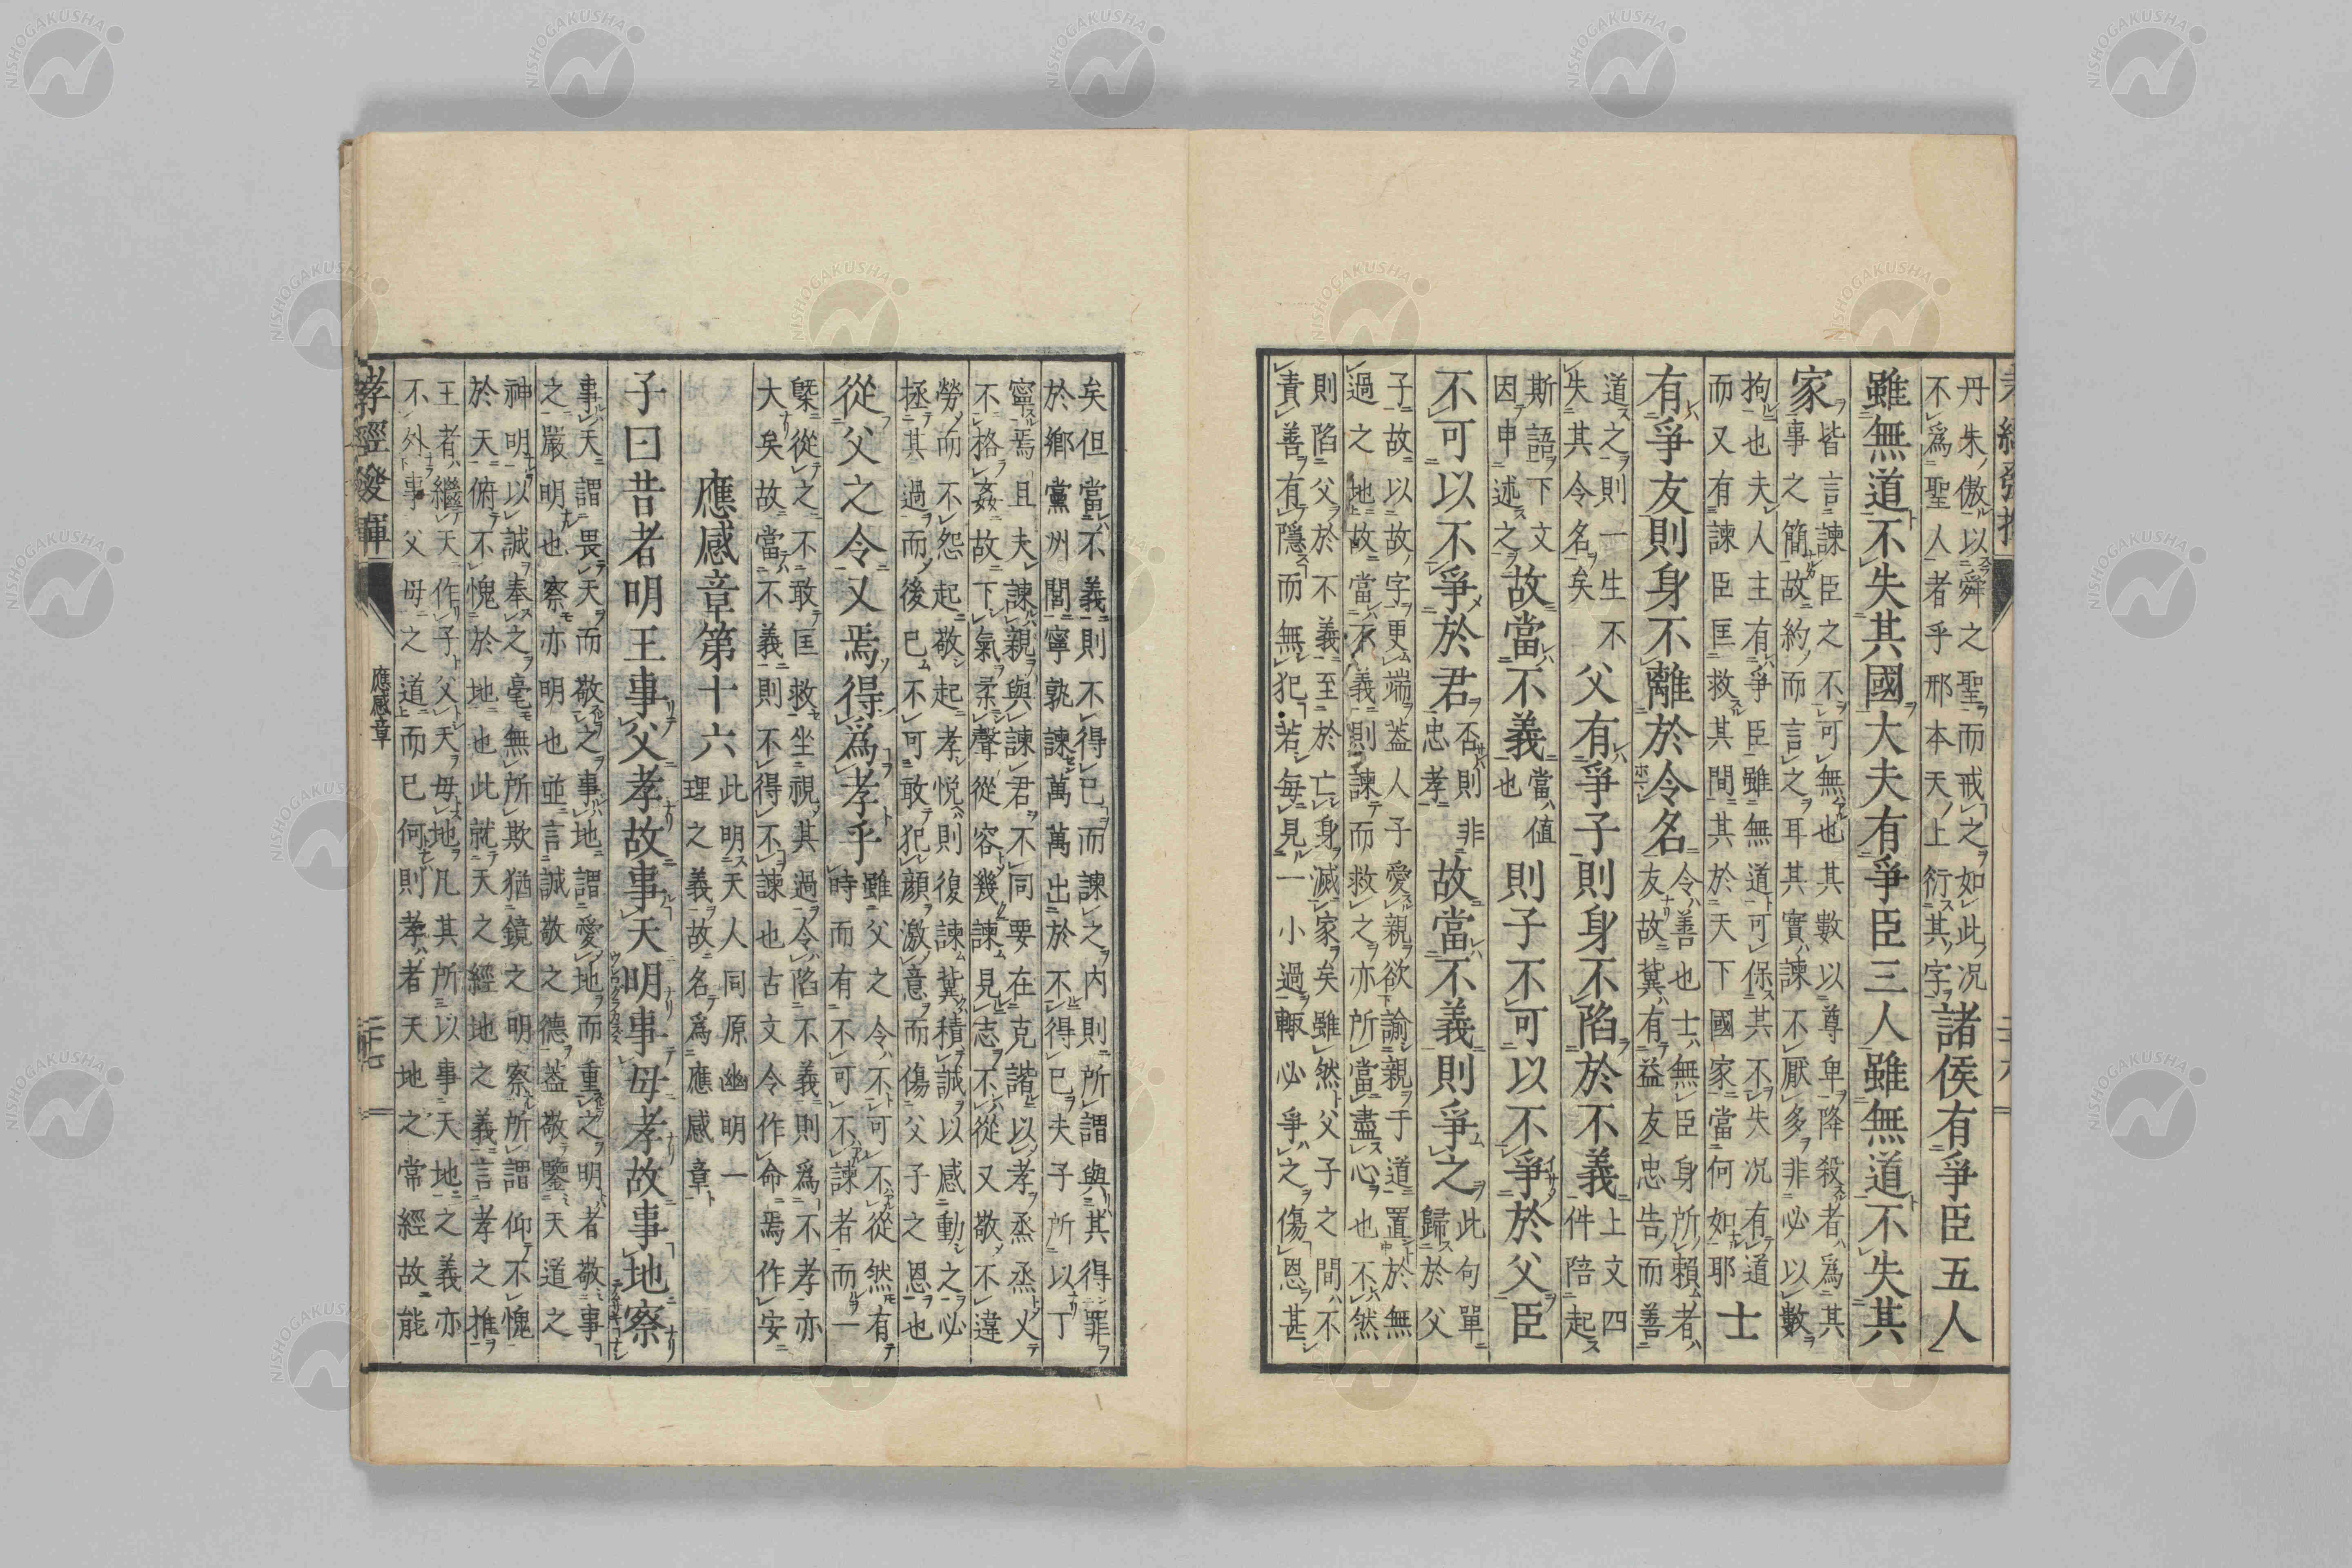 丹朱傲以舜之聖而戒之如此况
不爲聖人者乎邢本天上衍其字
諸侯有爭臣五人
雖無道不失其國大夫有爭臣三人雖無道不失其
家
皆言諫臣之不可無也其數以尊卑降殺者爲其
事之簡故約而言之耳其實諫不厭多非必以數
拘也夫人主有爭臣雖無道可保其不失况有道
而又有諫臣匡救其間其於天下國家當何如耶
士
有爭友則身不離於令名
令善也士無臣身所賴者
友故冀有益友忠告而善
道之則一生不
失其令名矣
父有爭子則身不陷於不義
上文四
件陪起
斯語下文
因申述之
故當不義
當値
也
則子不可以不爭於父臣
不可以不爭於君
否則非
忠孝
故當不義則爭之
此句單
歸於父
子故以故字更端蓋人子愛親欲諭親于道置於無
過之地故當不義則諫而救之亦所當盡心也不然
則陷父於不義至於亡身滅家矣雖然父子之間不
責善有隱而無犯若毎見一小過輙必爭之傷恩甚
矣但當不義則不得已而諫之内則所謂與其得罪
於鄉黨州閭寧孰諫萬萬出於不得已夫子所以丁
寧焉且夫諫親與諫君不同要在克諧以孝烝烝乂
不格姦故下氣柔聲從容幾諫見志不從又敬不違
勞而不怨起敬起孝悦則復諫冀積誠以感動之必
拯其過而後已不可敢犯顔激意而傷父子之恩也
從父之令又焉得爲孝乎
雖父之令不可不從然有
時而有不可不諫者而一
槩從之不敢匡救坐視其過令陷不義則爲不孝亦
大矣故當不義則不得不諫也古文令作命焉作安
應感章第十六
此明天人同原幽明一
理之義故名爲應感章
子曰昔者明王事父孝故事天明事母孝故事地察
事天謂畏天而敬之事地謂愛地而重之明者敬事
之嚴明也察亦明也並言誠敬之德蓋敬鑒天道之
神明以誠奉之毫無所欺猶鏡之明察所謂仰不愧
於天俯不愧於地也此就天之經地之義言孝之推
王者繼天作子父天母地凡其所以事天地之義亦
不外事父母之道而已何則孝者天地之常經故能
孝經發揮
應感章
NISHOGAKUSHA